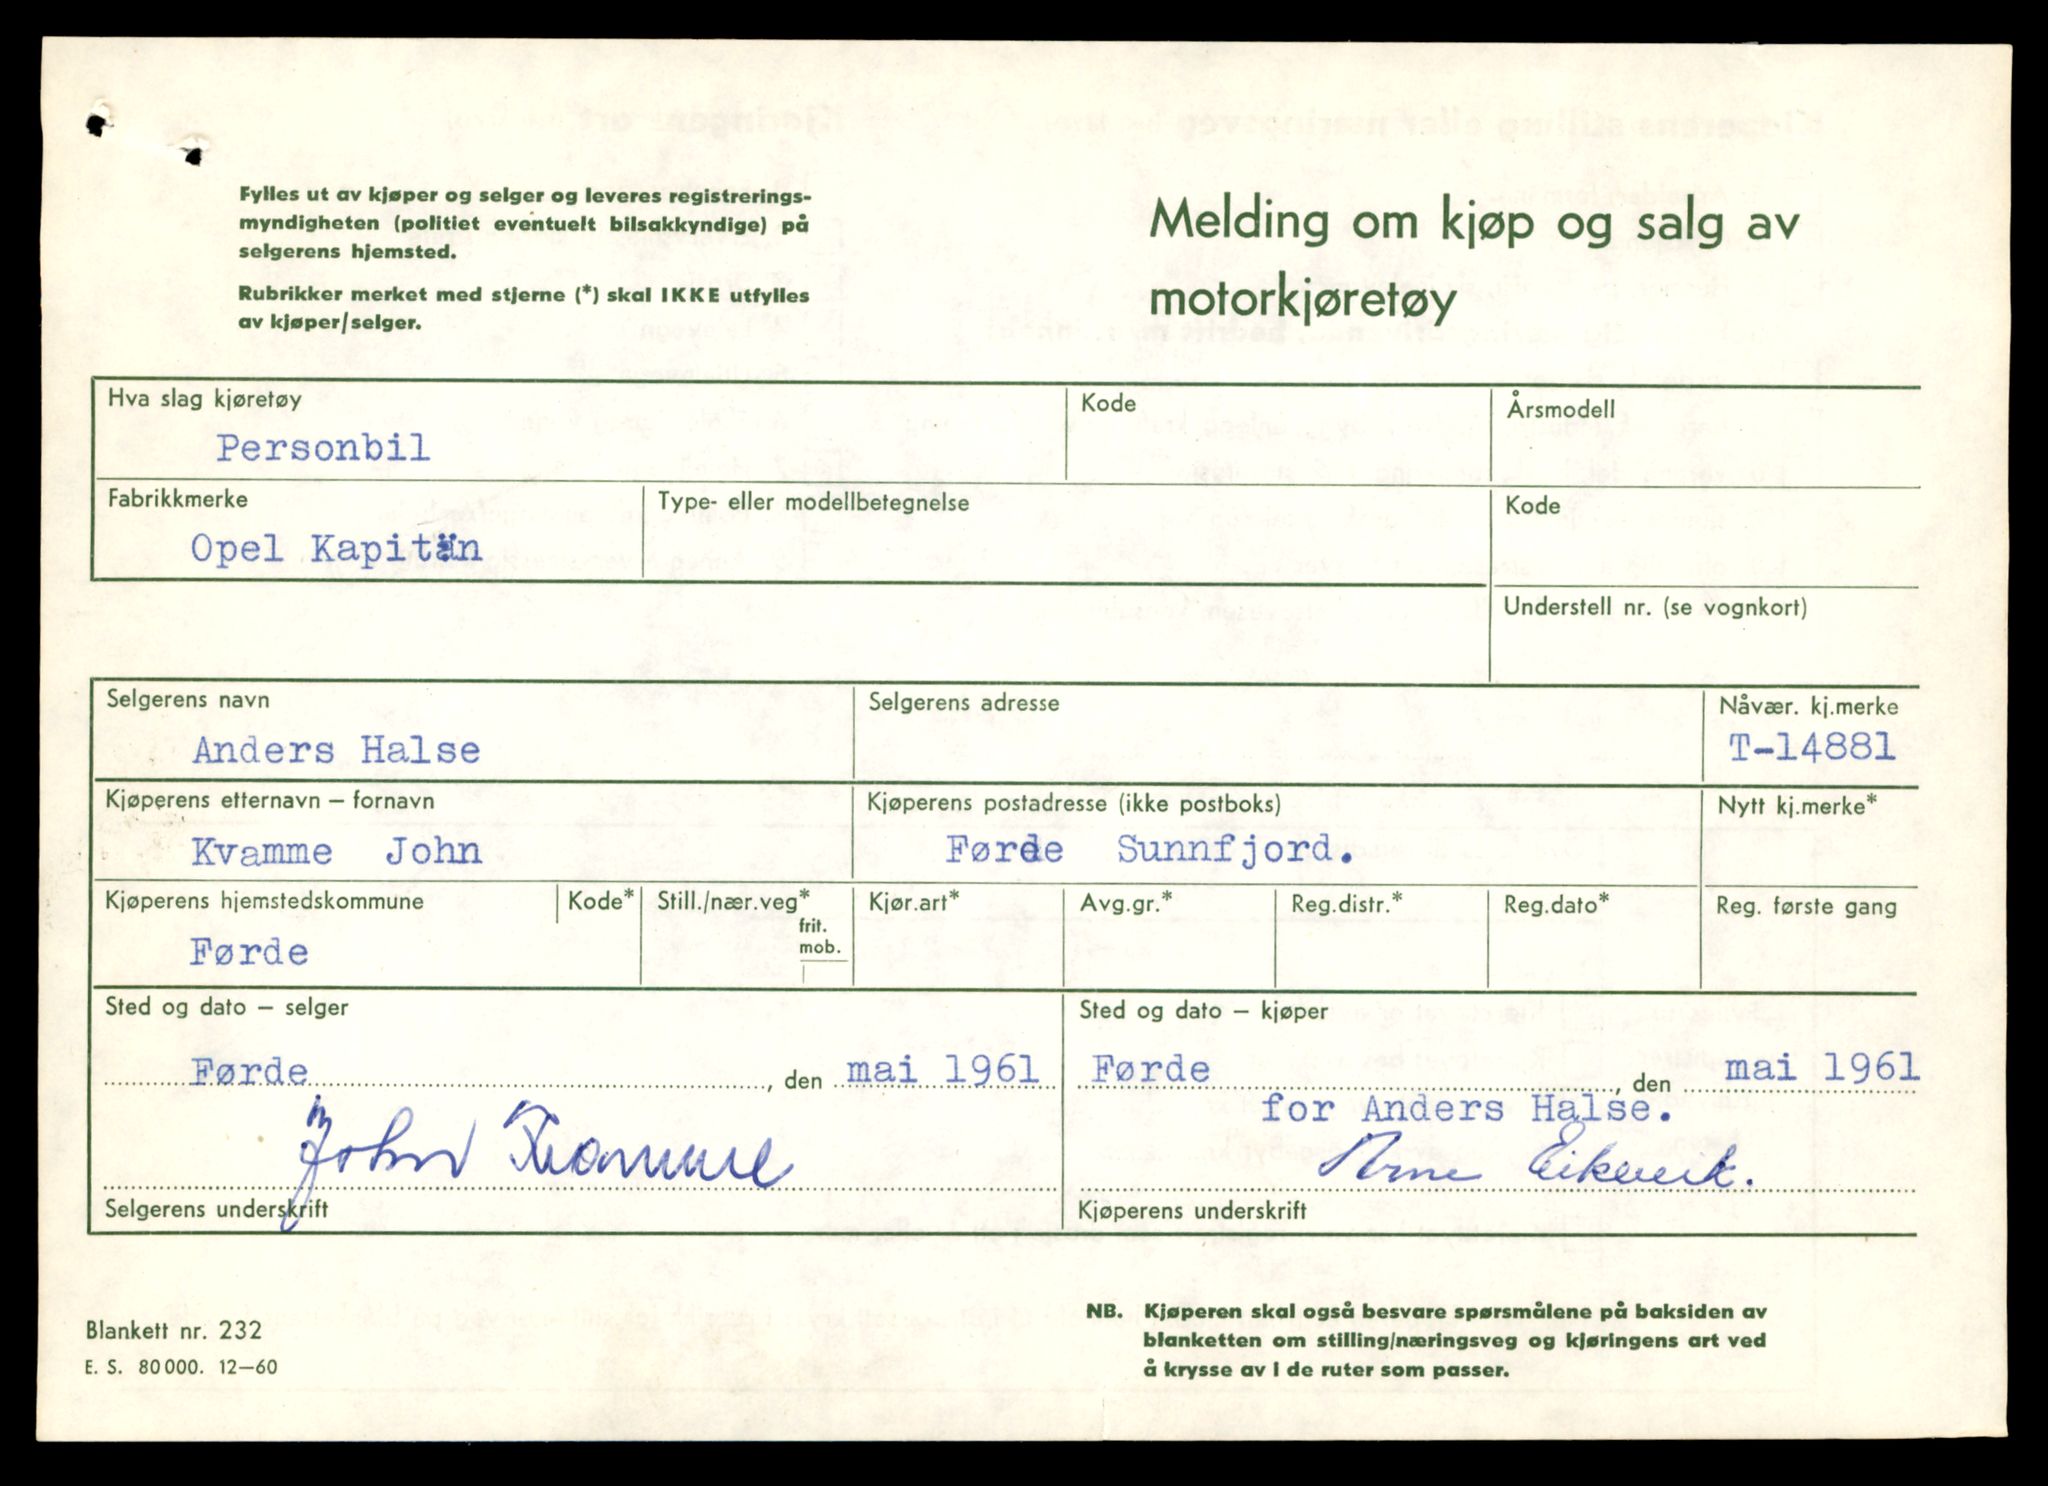 Fylles ut av kjøper og selger og leveres registrerings-
myndigheten (politiet eventuelt bilsakkyndige) på
selgerens hjemsted.
Rubrikker merket med stjerne (*) skal IKKE utfylles
av kjøper/selger.
Melding om kjøp og salg av
motorkjøretøy
Hva slag kjøretøy
Kode
Årsmodell
Personbil
Fabrikkmerke
Type- eller modellbetegnelse
Kode
Opel Kapitän
Understell nr. (se vognkort)
Selgerens navn
Selgerens adresse
Nåvær. kj.merke
Anders Halse
T-14881
Kjøperens etternavn – fornavn
Kjøperens postadresse (ikke postboks)
Nytt kj.merke*
Kvamme John
Førde Sunnfjord.
Kjøperens hjemstedskommune
Kode*
Still./nær.veg*
frit.
mob.
Kjør.art*
Avg.gr.*
Reg.distr.*
Reg.dato*
Reg. første gang
Førde
Sted og dato – selger
Sted og dato – kjøper
Førde, den mai 1961
Førde, den mai 1961
for Anders Halse.
John Kvamme
Arne Eikevik.
Selgerens underskrift
Kjøperens underskrift
Blankett nr. 232
E. S. 80 000. 12–60
NB. Kjøperen skal også besvare spørsmålene på baksiden av
blanketten om stilling/næringsveg og kjøringens art ved
å krysse av i de ruter som passer.